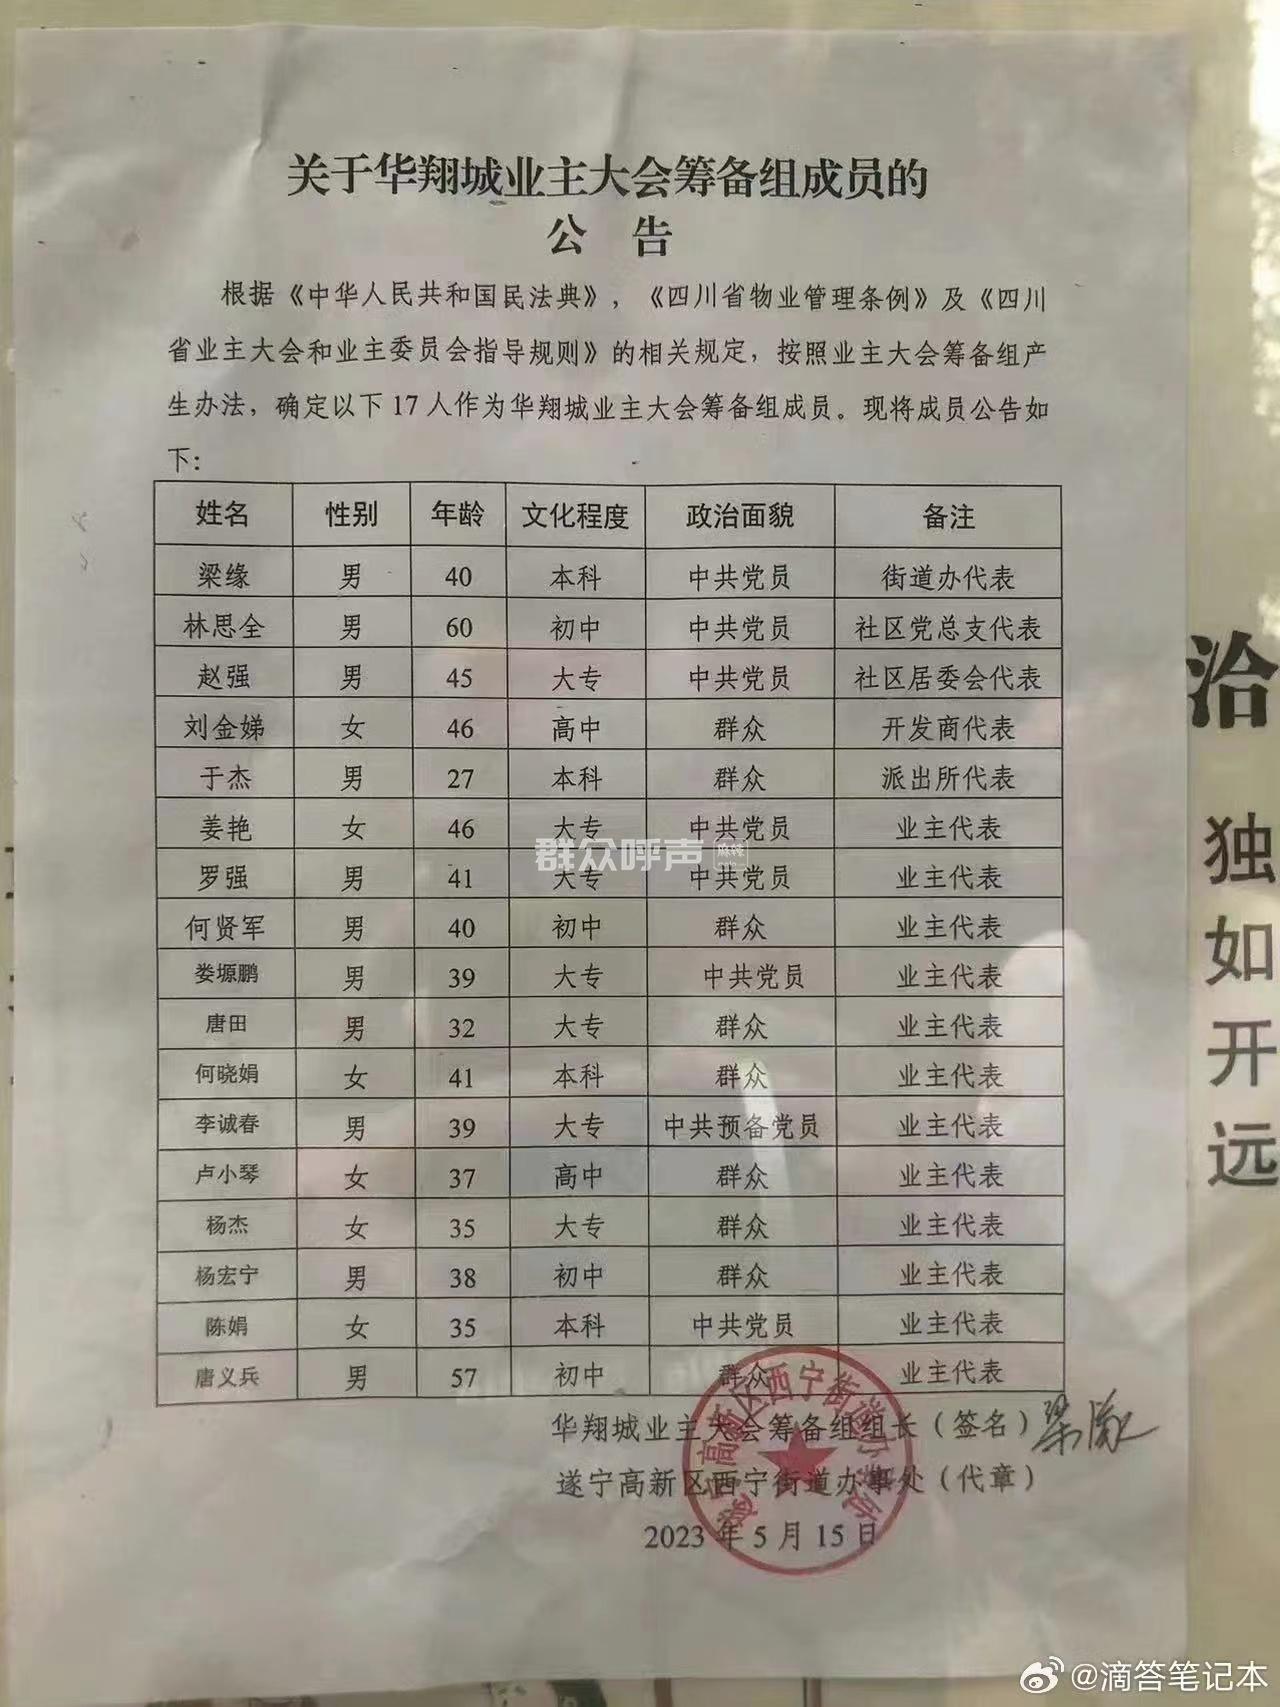 关于华翔城业主大会筹备组成员的
公 告
根据《中华人民共和国民法典》，《四川省物业管理条例》及《四川
省业主大会和业主委员会指导规则》的相关规定，按照业主大会筹备组产
生办法，确定以下17人作为华翔城业主大会筹备组成员。现将成员公告如
下：
姓名 性别 年龄 文化程度 政治面貌 备注
梁缘 男 40 本科 中共党员 街道办代表
林思全 男 60 初中 中共党员 社区党总支代表
赵强 男 45 大专 中共党员 社区居委会代表
刘金娣 女 46 高中 群众 开发商代表
于杰 男 27 本科 群众 派出所代表
姜艳 女 46 大专 中共党员 业主代表
群众呼声
罗强 男 41 大专 中共党员 业主代表
何贤军 男 40 初中 群众 业主代表
娄塬鹏 男 39 大专 中共党员 业主代表
唐田 男 32 大专 群众 业主代表
何晓娟 女 41 本科 群众 业主代表
李诚春 男 39 大专 中共预备党员 业主代表
卢小琴 女 37 高中 群众 业主代表
杨杰 女 35 大专 群众 业主代表
杨宏宁 男 38 初中 群众 业主代表
陈娟 女 35 本科 中共党员 业主代表
唐义兵 男 57 初中 群众 业主代表
华翔城业主大会筹备组组长（签名）梁缘
遂宁高新区西宁街道办事处（代章）
2023年5月15日
遂宁高新区西宁街道办事处
洽
独
如
开
远
@滴答笔记本